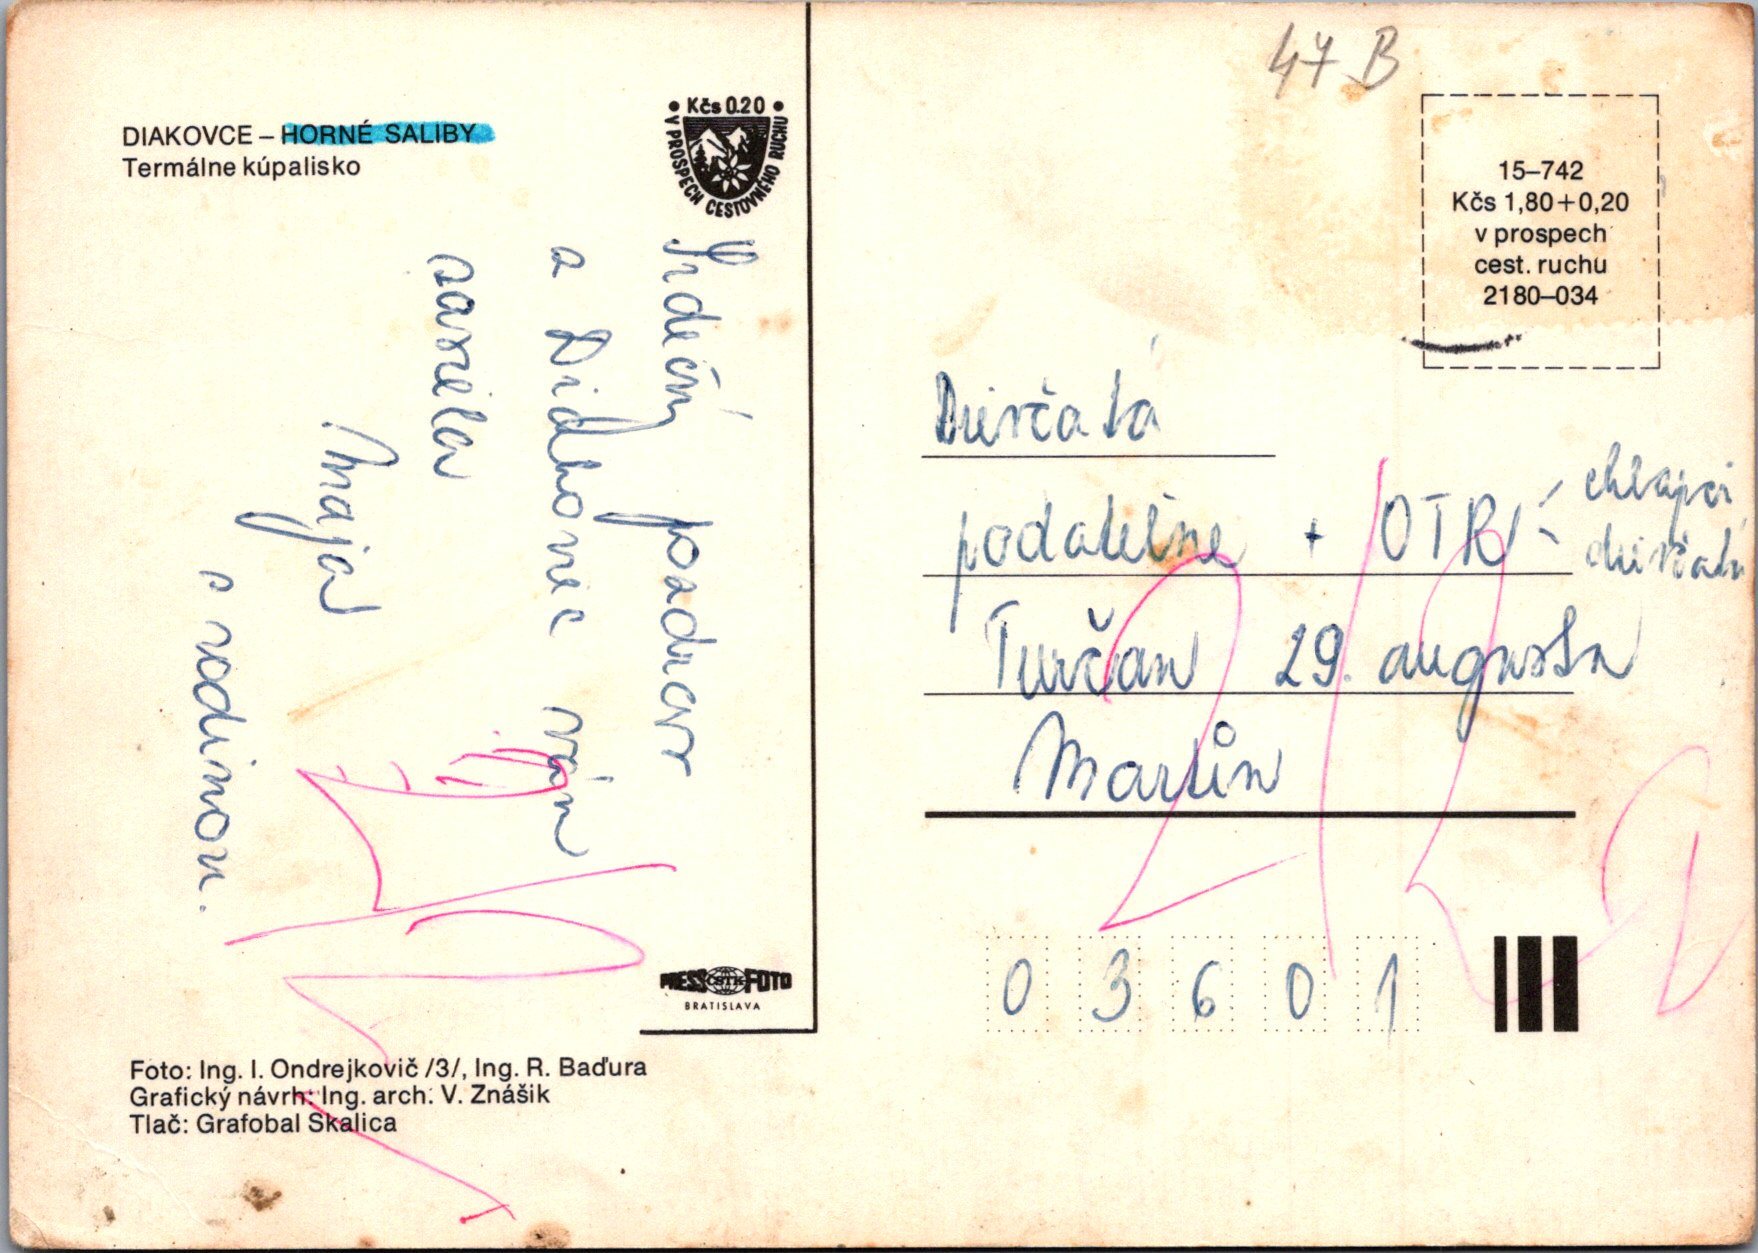 47 B
DIAKOVCE – HORNÉ SALIBY
Termálne kúpalisko
• Kčs 0.20 •
V PROSPECH CESTOVNÉHO RUCHU
15–742
Kčs 1,80+0,20
v prospech
cest. ruchu
2180–034
Srdečný pozdrav
a Diakoviec vám
Maja
s rodinou.
Dievčatá
podateľne + OTR
chlapci
dievčatá
Turčan 29. augusta
Martin
03601
PRESS ČSTK FOTO
BRATISLAVA
Foto: Ing. I. Ondrejkovič /3/, Ing. R. Baďura
Grafický návrh: Ing. arch. V. Znášik
Tlač: Grafobal Skalica